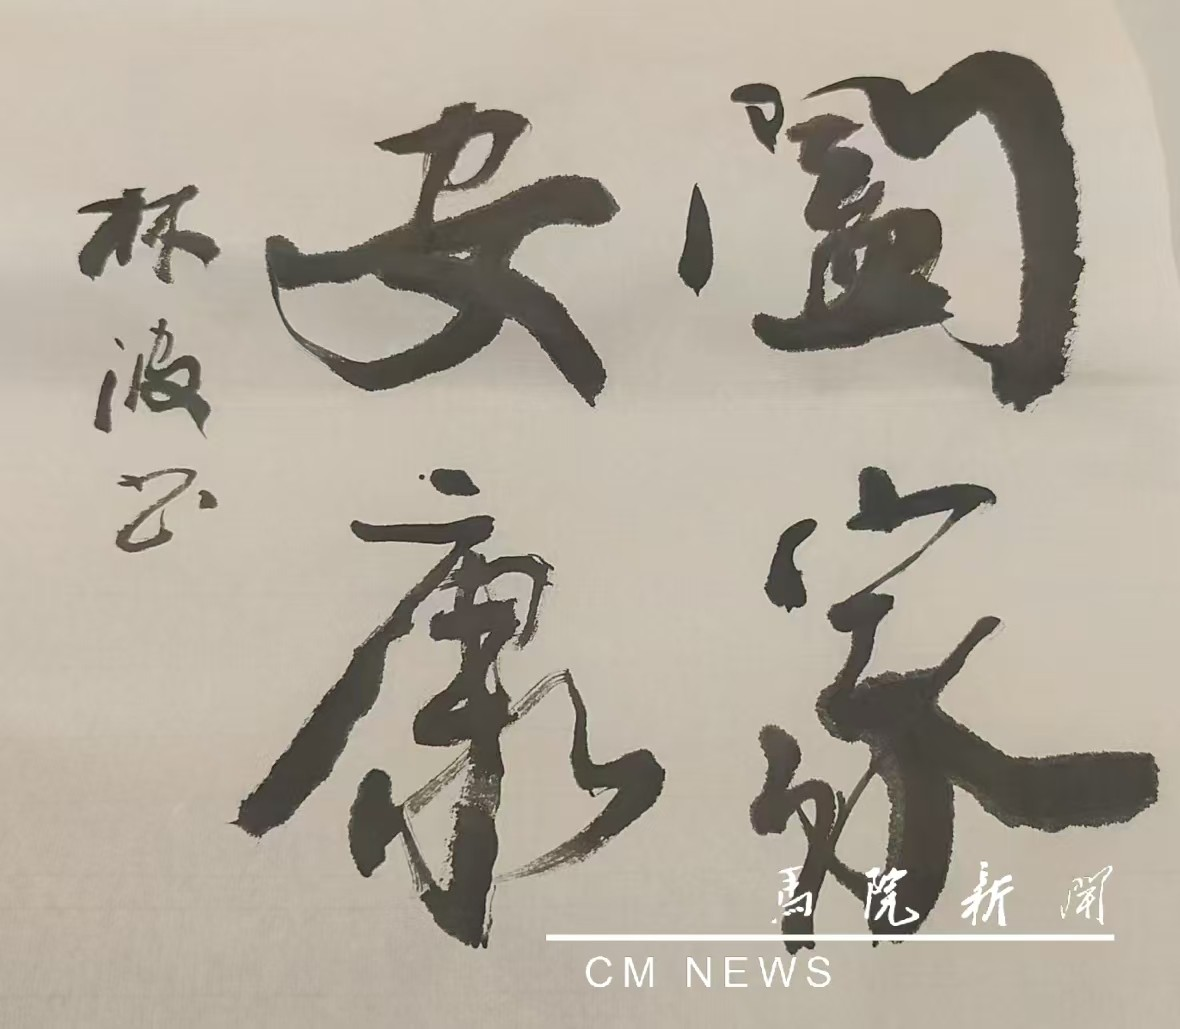 阖家
安康
林波书
馬院新聞
CM NEWS